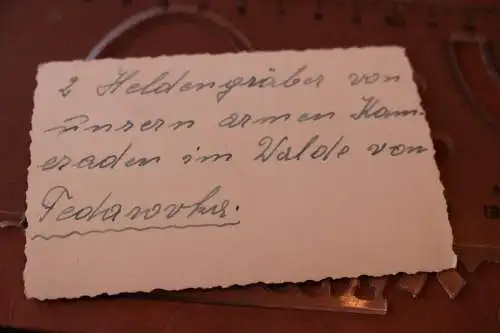 2 Heldengräber von
unsern armen Kam-
eraden im Walde von
Fedarovka.